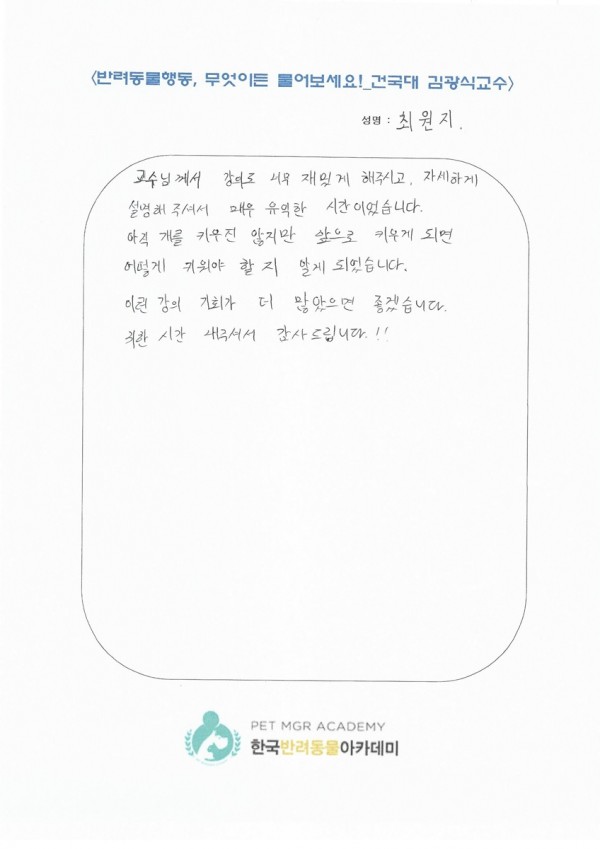 <반려동물행동, 무엇이든 물어보세요!_건국대 김광식교수>
성명 : 최원지.
교수님께서 강의로 너무 재밌게 해주시고, 자세하게
설명해 주셔서 매우 유익한 시간이었습니다.
아직 개를 키우진 않지만 앞으로 키우게 되면
어떻게 키워야 할 지 알게 되었습니다.
이런 강의 기회가 더 많았으면 좋겠습니다.
귀한 시간 내주셔서 감사드립니다.!!
PET MGR ACADEMY
한국반려동물아카데미